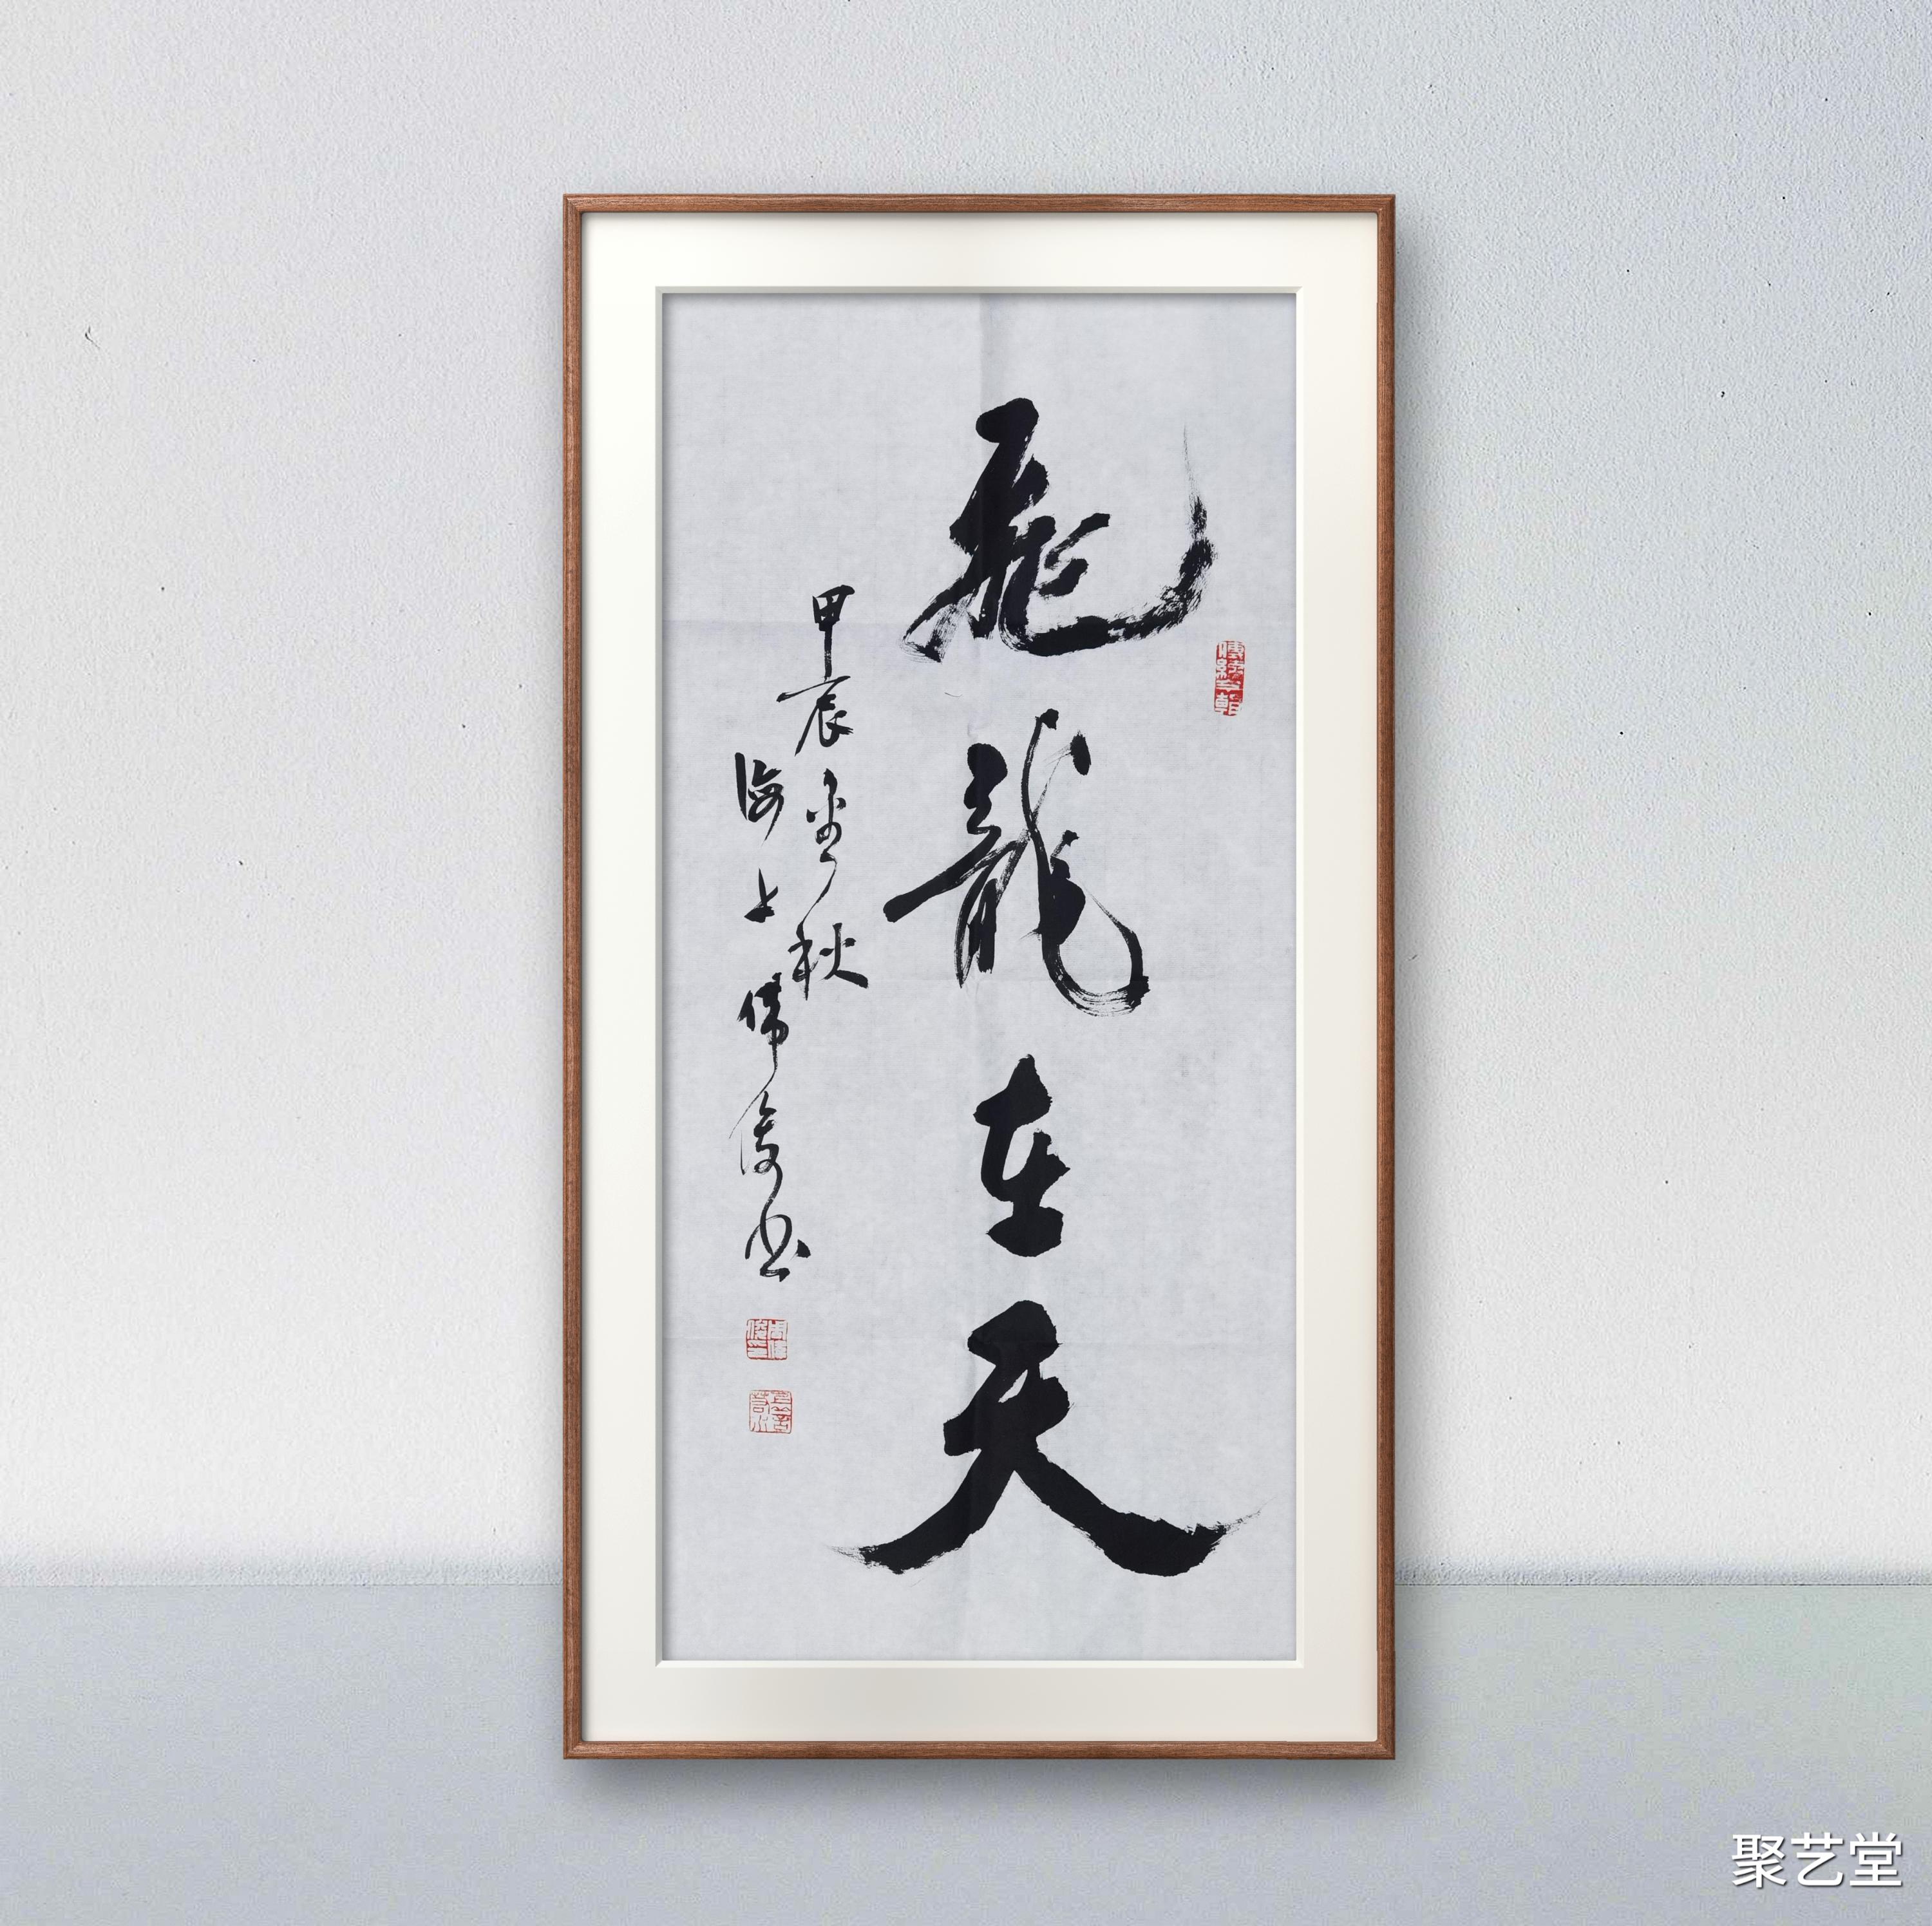 飛龍在天
甲辰金秋
海上偉俊书
聚艺堂